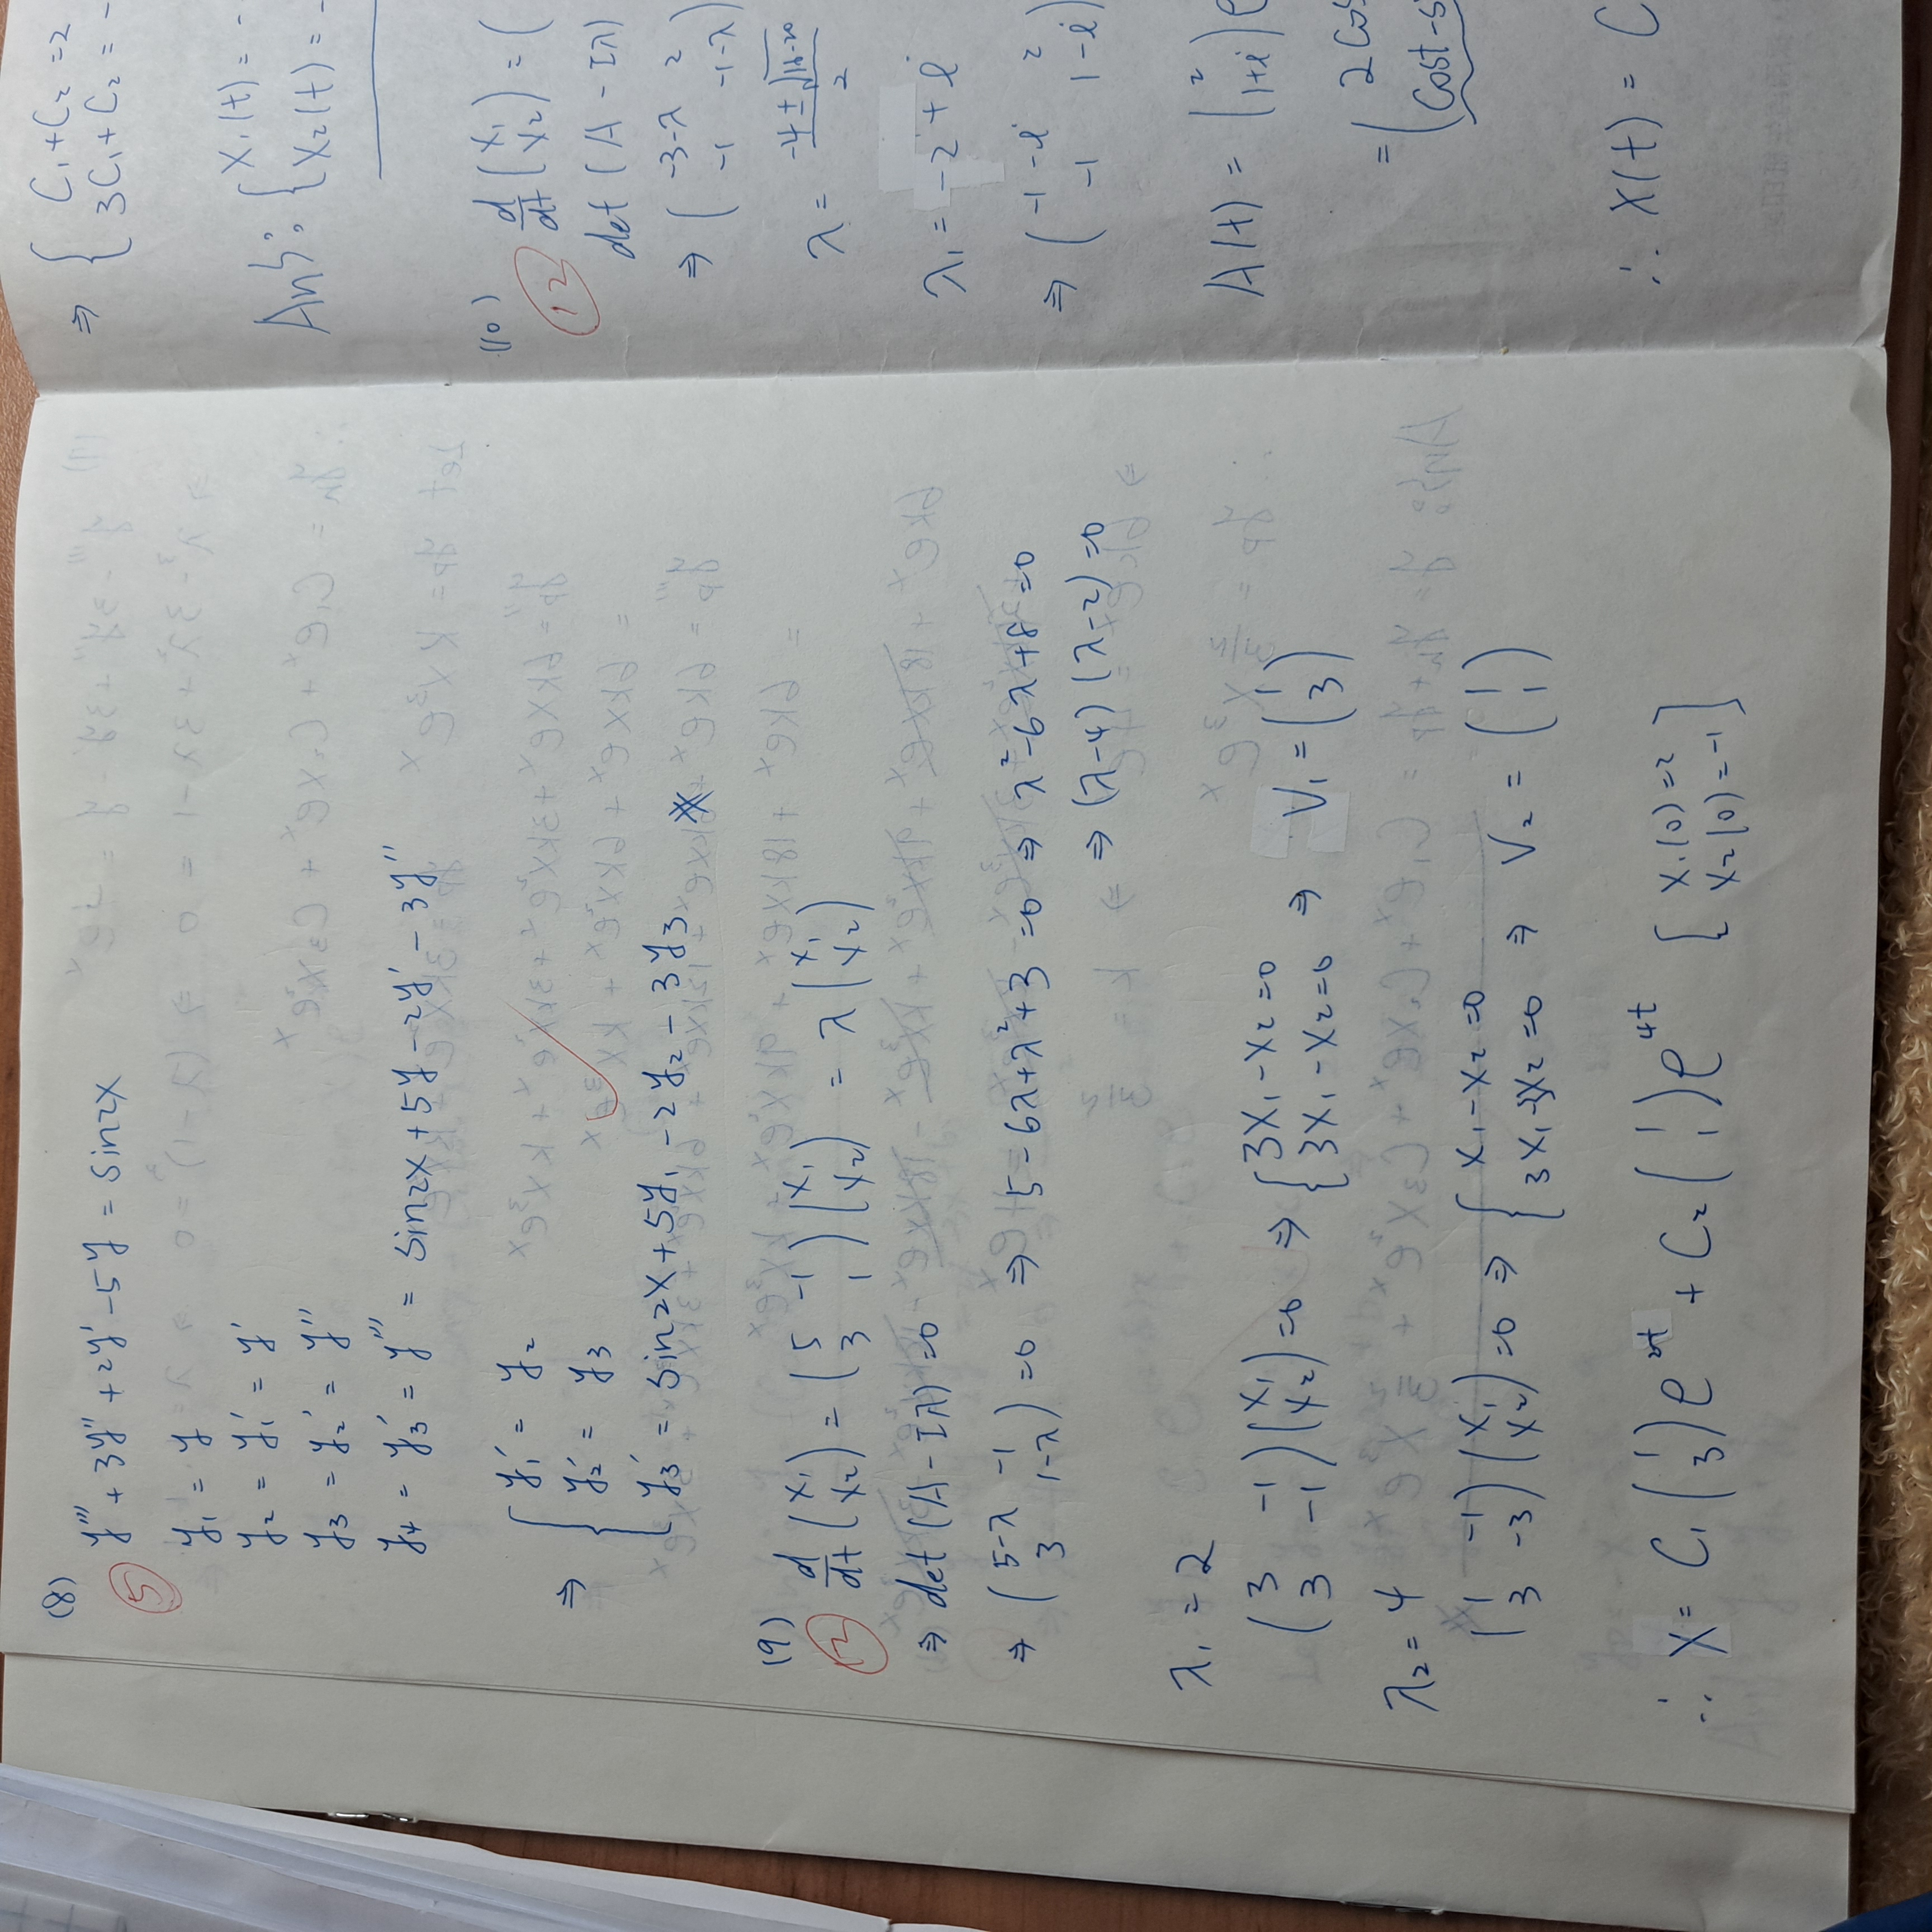 (8)
⑤ y''' + 3y'' + 2y' - 5y = sin2x
y₁ = y
y₂ = y₁' = y'
y₃ = y₂' = y''
y₄ = y₃' = y''' = sin2x + 5y - 2y' - 3y''
⇒ { y₁' = y₂
y₂' = y₃
y₃' = sin2x + 5y₁ - 2y₂ - 3y₃
(9)
⑫ d/dt (x₁ x₂) = (5 -1 3 1)(x₁ x₂) = λ(x₁ x₂)
⇒ det(A - Iλ) = 0
⇒ (5-λ -1 3 1-λ) = 0 ⇒ 5 - 6λ + λ² + 3 = 0 ⇒ λ² - 6λ + 8 = 0
⇒ (λ-4)(λ-2) = 0
λ₁ = 2
(3 -1 3 -1)(x₁ x₂) = 0 ⇒ { 3x₁ - x₂ = 0 3x₁ - x₂ = 0 ⇒ V₁ = (1 3)
λ₂ = 4
(1 -1 3 -3)(x₁ x₂) = 0 ⇒ { x₁ - x₂ = 0 3x₁ - 3x₂ = 0 ⇒ V₂ = (1 1)
∴ X = C₁(1 3)e²ᵗ + C₂(1 1)e⁴ᵗ [x₁(0) = 2 x₂(0) = -1]
⇒ { C₁ + C₂ = 2
3C₁ + C₂ = -
Ans: { x₁(t) = -
x₂(t) = -
(10)
⑫ d/dt (x₁ x₂) = (
det(A - Iλ)
⇒ (-3-λ 2 -1 -1-λ)
λ = -4±√16-20 / 2
λ₁ = -2 + i
⇒ (-1-i 2 -1 1-i)
A(t) = (2 1+i)e
= (2cos
cost - s
∴ X(t) = C